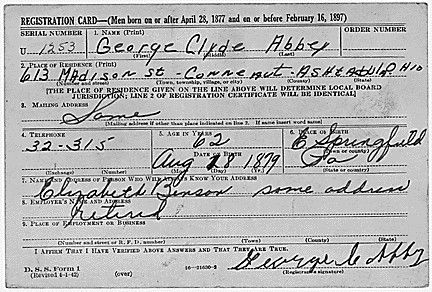 REGISTRATION CARD—(Men born on or after April 28, 1877 and on or before February 16, 1897)
SERIAL NUMBER 1. NAME (Print) ORDER NUMBER
U 1253 George Clyde Abbey
2. PLACE OF RESIDENCE (Print)
613 Madison St - Conneaut - Ashtabula Ohio
(Number and street) (Town, township, village, or city) (County) (State)
[THE PLACE OF RESIDENCE GIVEN ON THE LINE ABOVE WILL DETERMINE LOCAL BOARD
JURISDICTION; LINE 2 OF REGISTRATION CERTIFICATE WILL BE IDENTICAL]
3. MAILING ADDRESS
Same
[Mailing address if other than place indicated on line 2. If same insert word same]
4. TELEPHONE 5. AGE IN YEARS 6. PLACE OF BIRTH
32-315 62 E Springfield
DATE OF BIRTH (Town or county)
Aug 18 1879 Pa
(Exchange) (Number) (Mo.) (Day) (Yr.) (State or country)
7. NAME AND ADDRESS OF PERSON WHO WILL ALWAYS KNOW YOUR ADDRESS
Elizabeth same address
8. EMPLOYER'S NAME AND ADDRESS
retired
9. PLACE OF EMPLOYMENT OR BUSINESS
(Number and street or R. F. D. number) (Town) (County) (State)
I AFFIRM THAT I HAVE VERIFIED ABOVE ANSWERS AND THAT THEY ARE TRUE.
D. S. S. Form 1 George C Abby
(Revised 4-1-42) (over) 16—21630-2 (Registrant's signature)